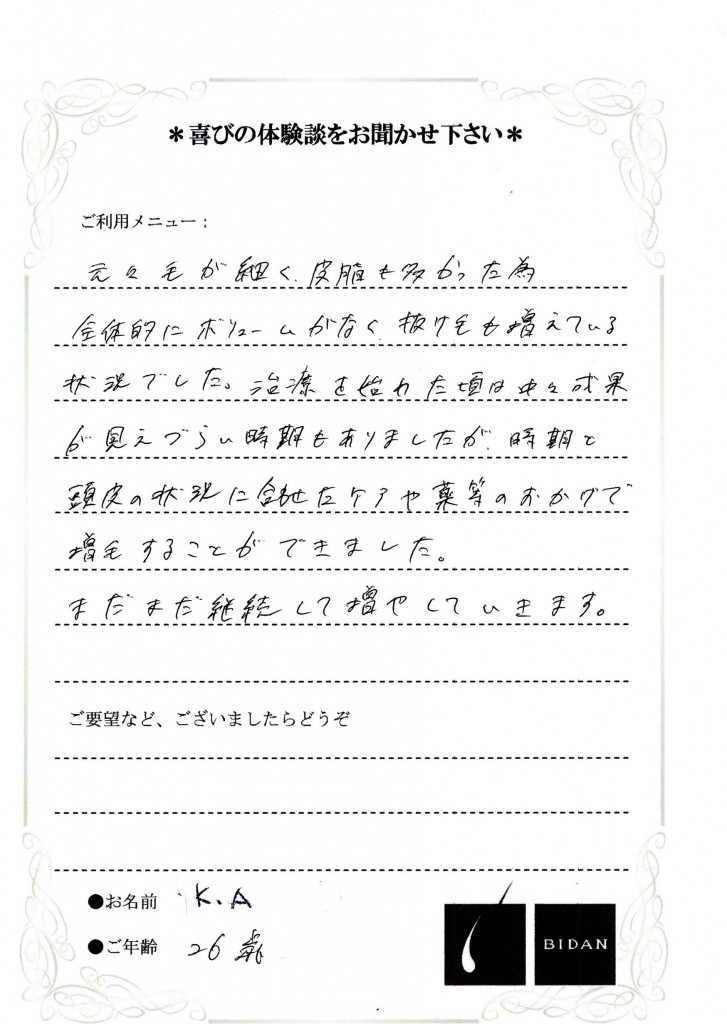 ＊喜びの体験談をお聞かせ下さい＊
ご利用メニュー：
元々毛が細く、皮脂も多かった為
全体的にボリュームがなく、抜け毛も増えている
状況でした。治療を始めた頃は中々成果
が見えづらい時期もありましたが、時期と
頭皮の状況に合せたケアや薬等のおかげで
増毛することができました。
まだまだ継続して増やしていきます。
ご要望など、ございましたらどうぞ
●お名前 K.A
●ご年齢 26歳
BIDAN